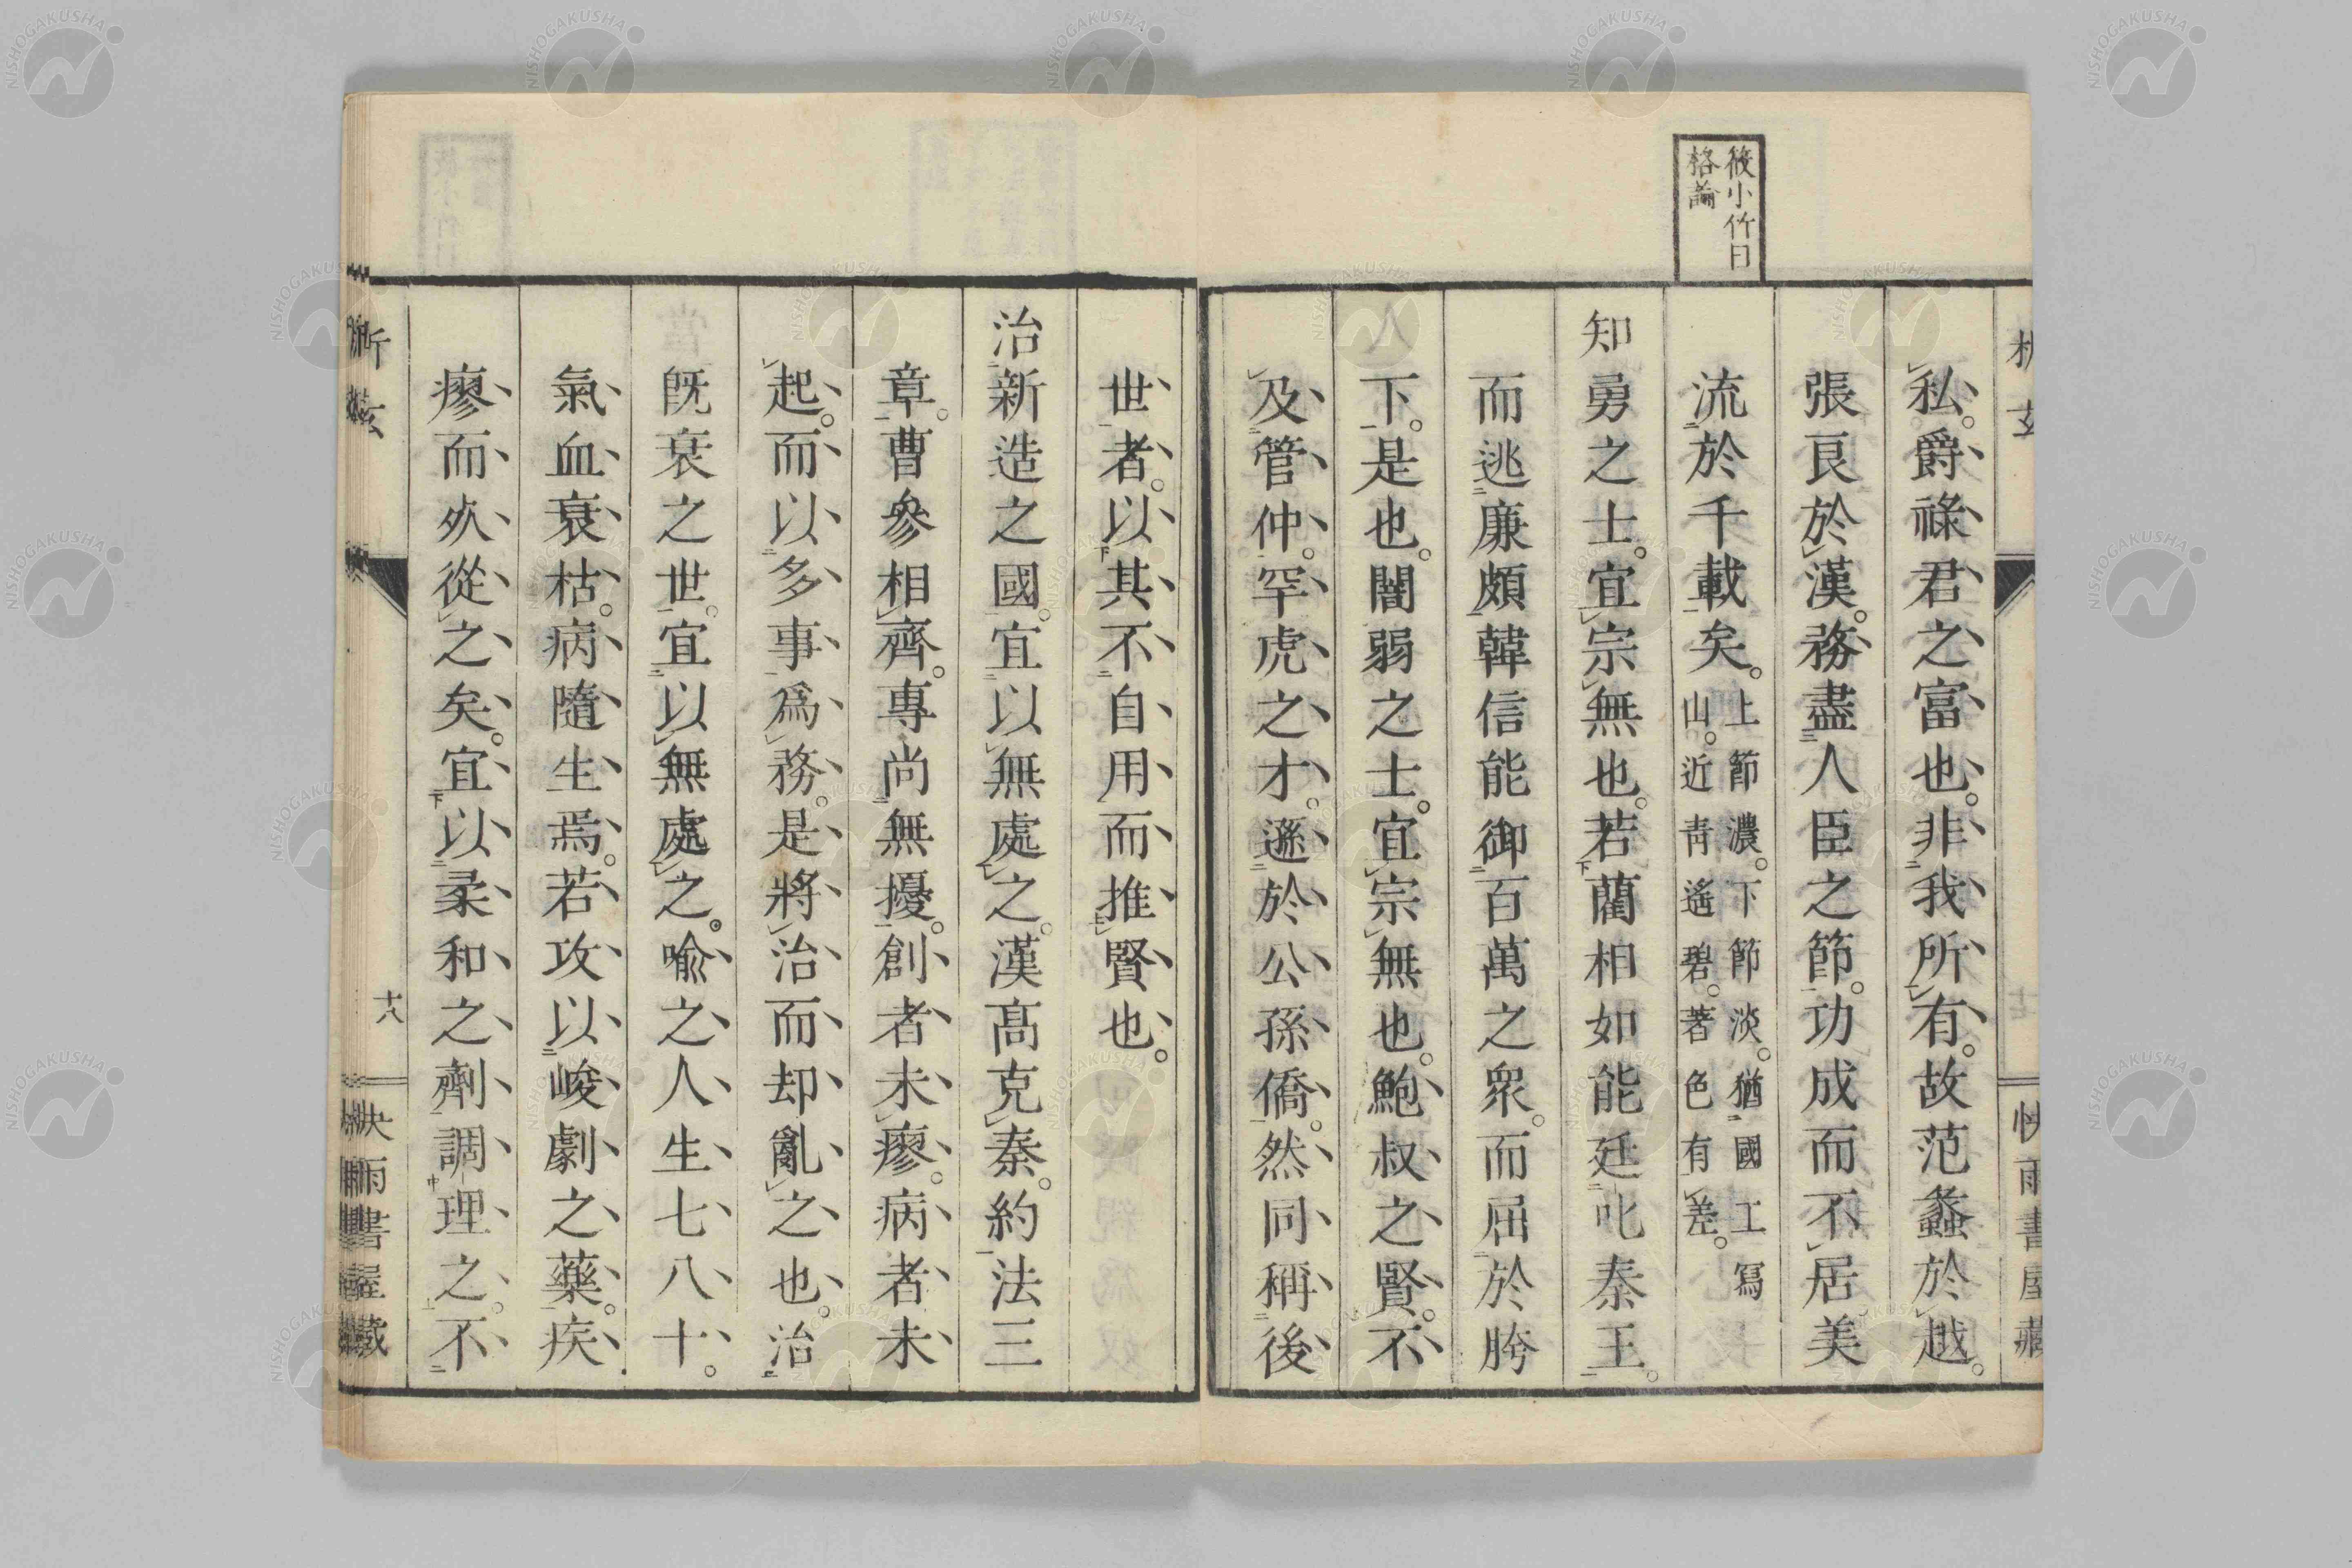 筱小竹曰
格論
私。爵祿君之富也。非我所有。故范蠡於越。
張良於漢。務盡人臣之節。功成而不居美
流於千載矣。上節濃。下節淡。猶國工寫
山。近靑遙碧。著色有差。
知勇之士。宜宗無也。若藺相如能廷叱秦王。
而逃廉頗韓信能御百萬之衆。而屈於胯
下。是也。闇弱之士。宜宗無也。鮑叔之賢。不
及管仲。罕虎之才。遜於公孫僑。然同稱後
世者。以其不自用而推賢也。
治新造之國。宜以無處之。漢高克秦。約法三
章。曹參相齊。專尚無擾。創者未瘳。病者未
起。而以多事爲務。是將治而却亂之也。治
旣衰之世。宜以無處之。喩之人生七八十。
氣血衰枯。病隨生焉。若攻以峻劇之藥。疾
瘳而烑從之矣。宜以柔和之劑調理之。不
十八
快雨書屋藏
NISHOGAKUSHA